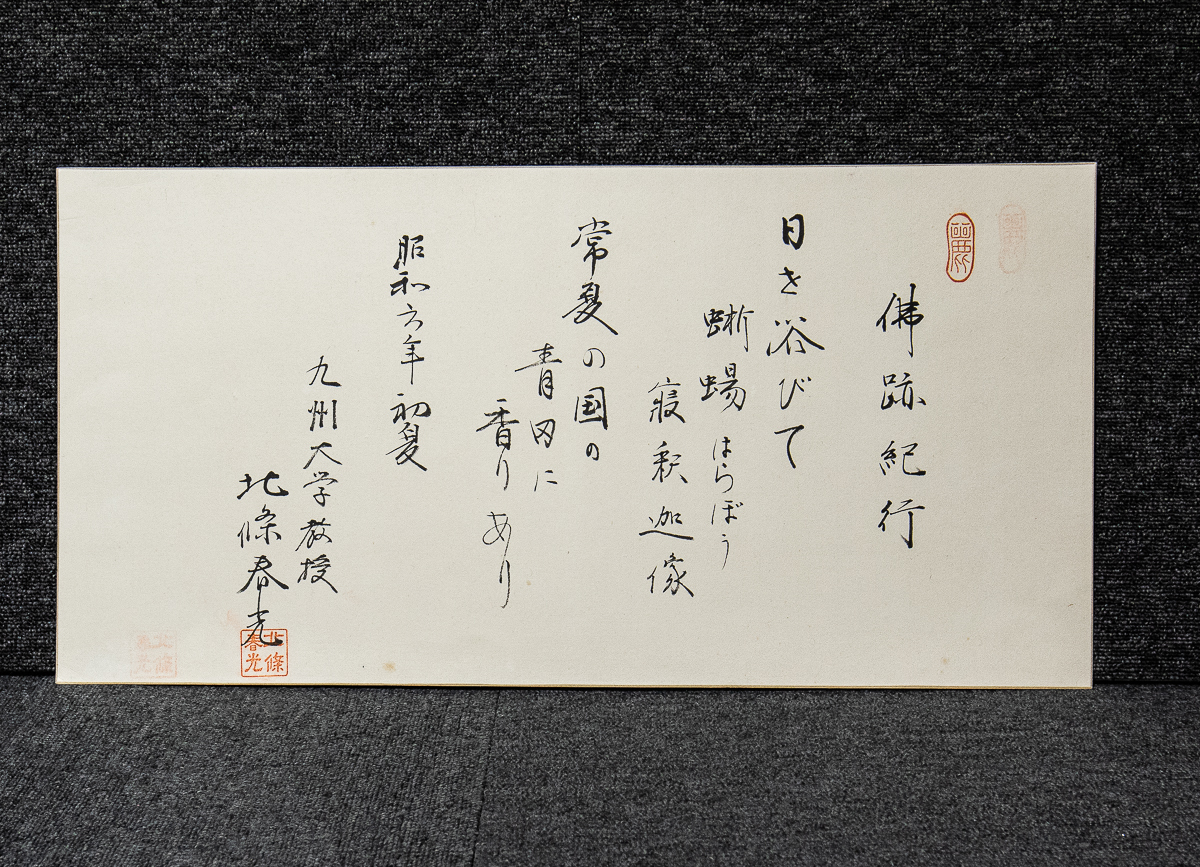 佛跡紀行
日を浴びて
蜥蜴はらばう
寝釈迦像
常夏の国の
青田に
香りあり
昭和六年初夏
九州大学教授
北條春光
北條春光